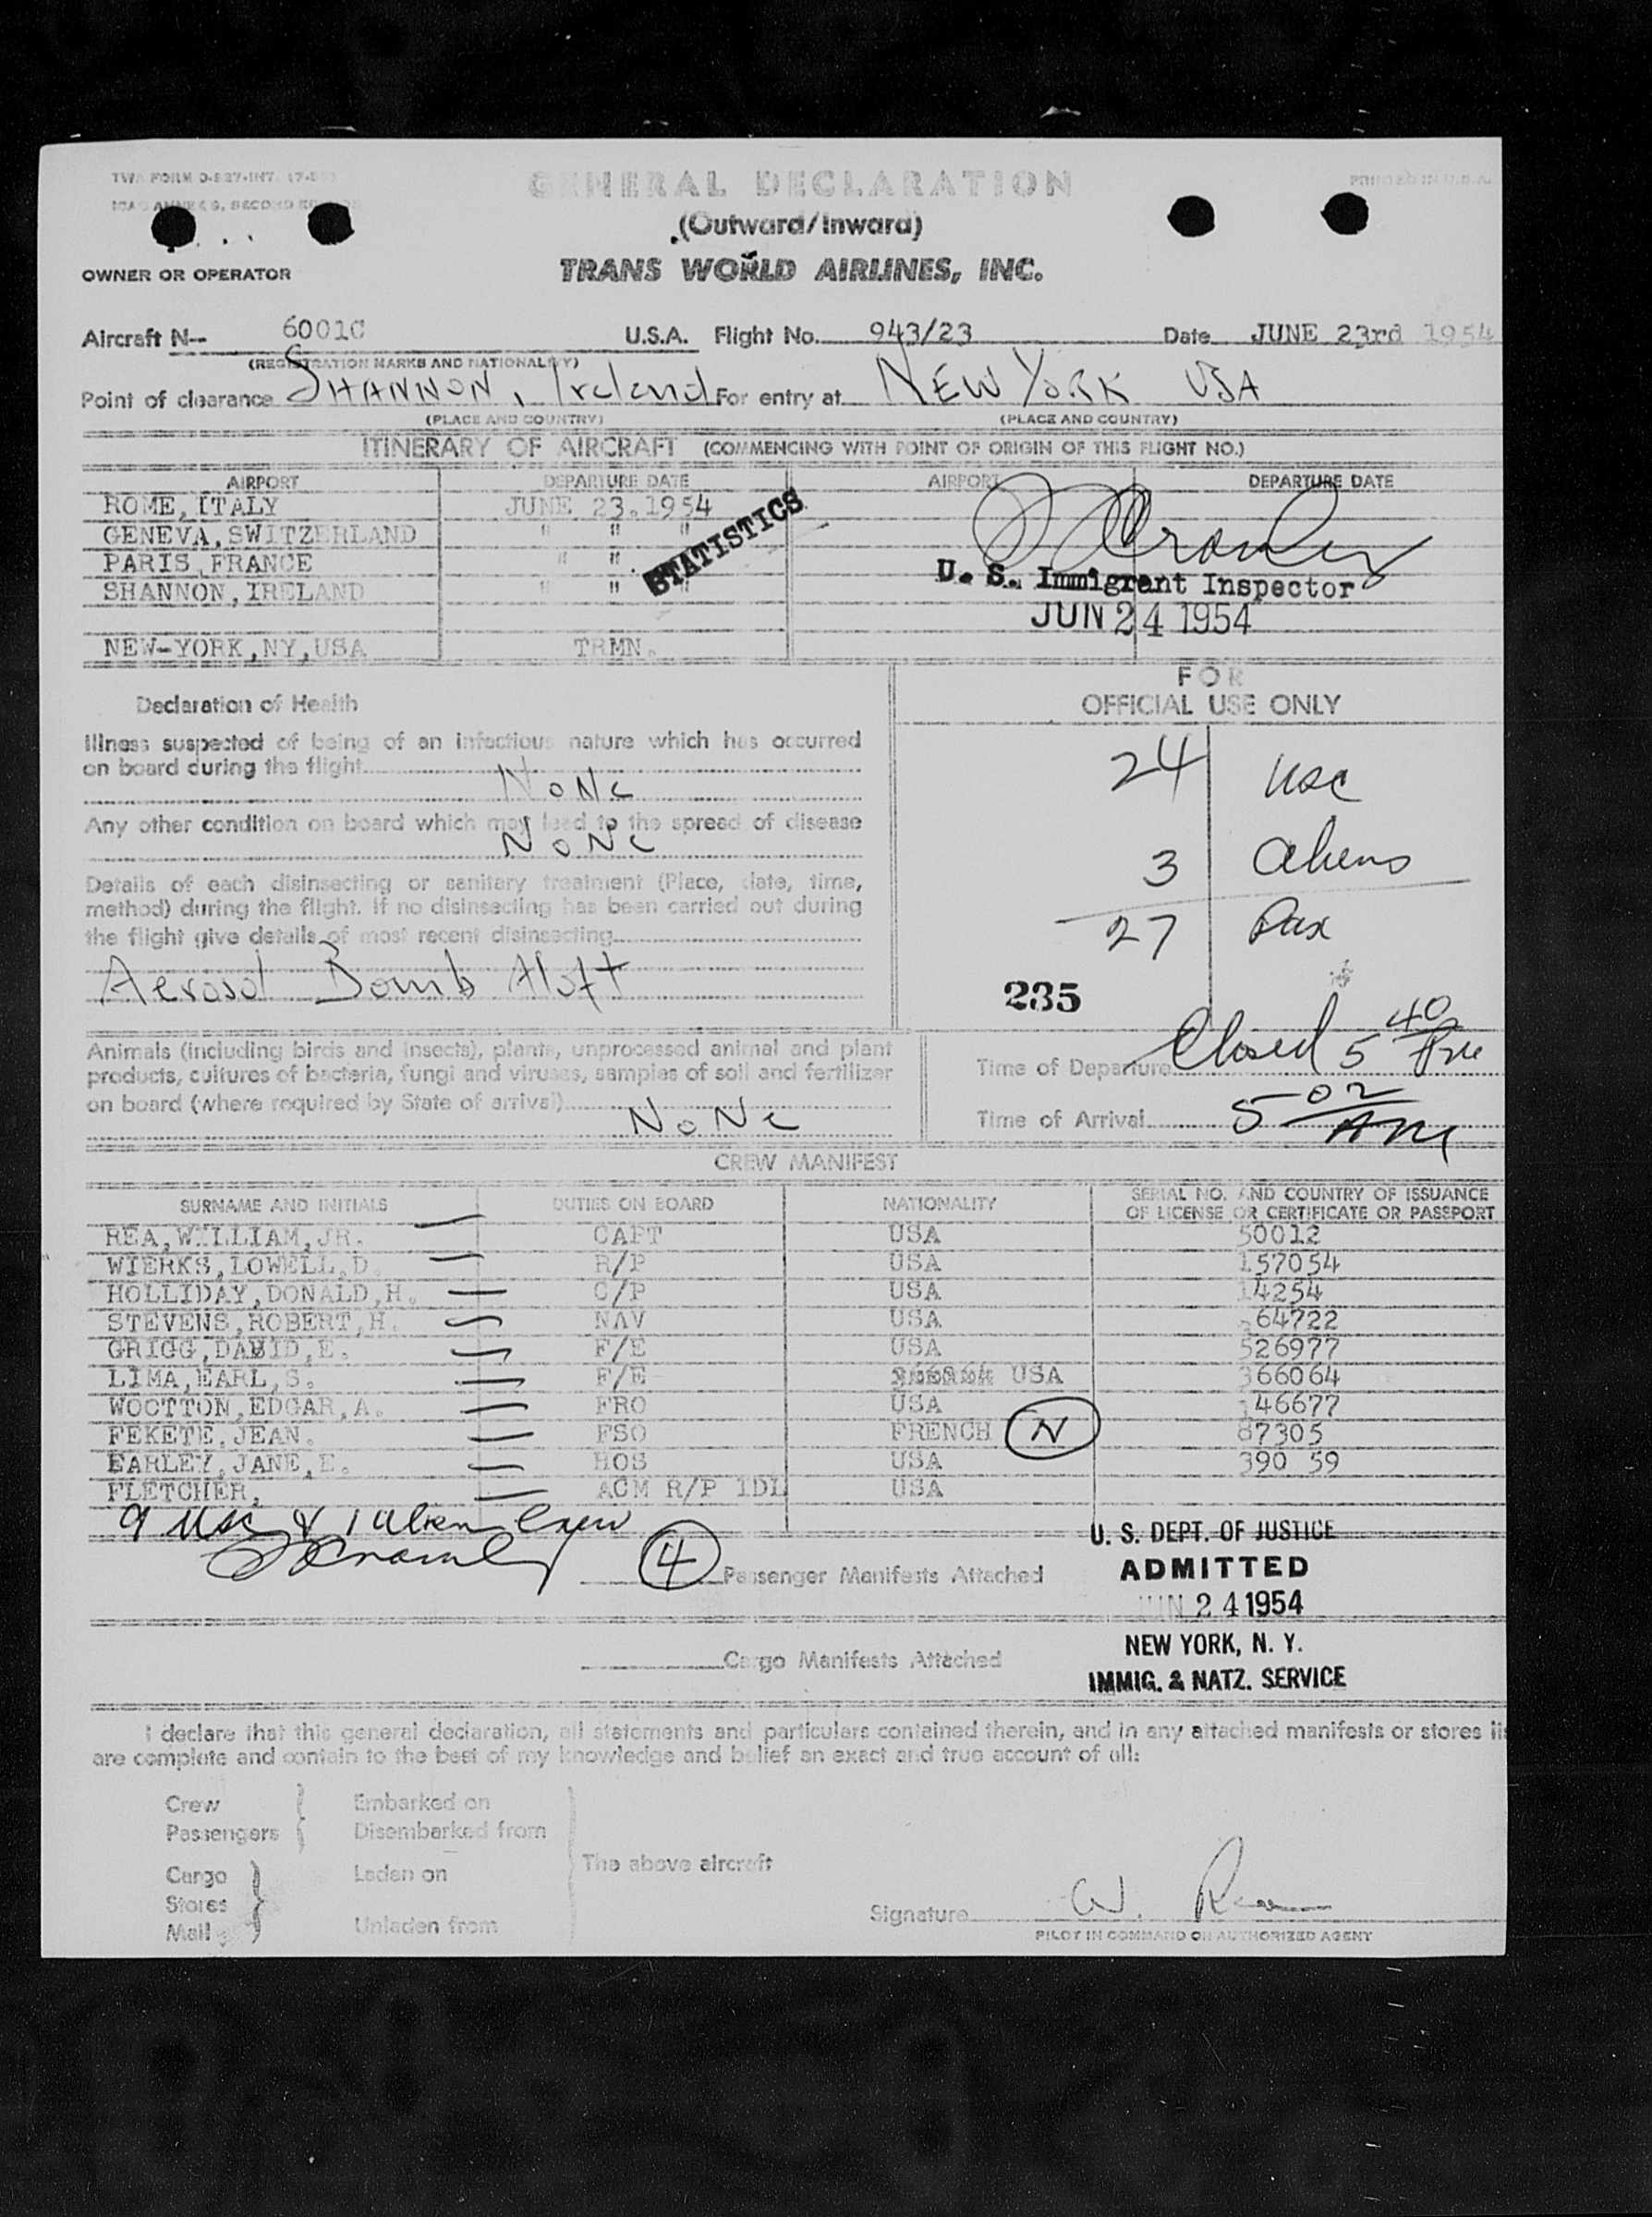 TWA FORM
GENERAL DECLARATION
PRINTED IN U.S.A.
(Outward/Inward)
OWNER OR OPERATOR
TRANS WORLD AIRLINES, INC.
Aircraft N-- 6001C U.S.A. Flight No. 943/23 Date JUNE 23rd 1954
(REGISTRATION MARKS AND NATIONALITY)
Point of clearance SHANNON, Ireland For entry at NEW YORK USA
(PLACE AND COUNTRY) (PLACE AND COUNTRY)
ITINERARY OF AIRCRAFT (COMMENCING WITH POINT OF ORIGIN OF THIS FLIGHT NO.)
AIRPORT DEPARTURE DATE AIRPORT DEPARTURE DATE
ROME, ITALY JUNE 23.1954
GENEVA, SWITZERLAND " " "
PARIS, FRANCE " "
SHANNON, IRELAND " " "
NEW-YORK, NY, USA TRMN.
STATISTICS
U. S. Immigrant Inspector
JUN 24 1954
Declaration of Health
Illness suspected of being of an infectious nature which has occurred
on board during the flight
NoNe
Any other condition on board which may lead to the spread of disease
NoNe
Details of each disinsecting or sanitary treatment (Place, date, time,
method) during the flight. If no disinsecting has been carried out during
the flight give details of most recent disinsecting
Aerosol Bomb Aloft
FOR
OFFICIAL USE ONLY
24 usc
3 aliens
27 Pax
235
Animals (including birds and insects), plants, unprocessed animal and plant
products, cultures of bacteria, fungi and viruses, samples of soil and fertilizer
on board (where required by State of arrival)
NoNe
Time of Departure Closed 5 40
Time of Arrival 5 02 AM
CREW MANIFEST
SURNAME AND INITIALS DUTIES ON BOARD NATIONALITY SERIAL NO. AND COUNTRY OF ISSUANCE
OF LICENSE OR CERTIFICATE OR PASSPORT
REA, WILLIAM, JR. CAPT USA 50012
WIERKS, LOWELL, D. R/P USA 157054
HOLLIDAY, DONALD, H. C/P USA 14254
STEVENS, ROBERT, H. NAV USA 64722
GRIGG, DAVID, E. F/E USA 526977
LIMA, EARL, S. F/E USA 366064
WOOTTON, EDGAR, A. FRO USA 46677
FEKETE, JEAN. FSO FRENCH N 87305
EARLEY, JANE, E. HOS USA 390 59
FLETCHER, ACM R/P IDL USA
9 usc & 1 alien crew
4 Passenger Manifests Attached
Cargo Manifests Attached
U. S. DEPT. OF JUSTICE
ADMITTED
JUN 24 1954
NEW YORK, N. Y.
IMMIG. & NATZ. SERVICE
I declare that this general declaration, all statements and particulars contained therein, and in any attached manifests or stores lis
are complete and contain to the best of my knowledge and belief an exact and true account of all:
Crew Embarked on
Passengers Disembarked from
The above aircraft
Cargo Laden on
Stores
Mail Unladen from
Signature W. Rea
PILOT IN COMMAND OR AUTHORIZED AGENT